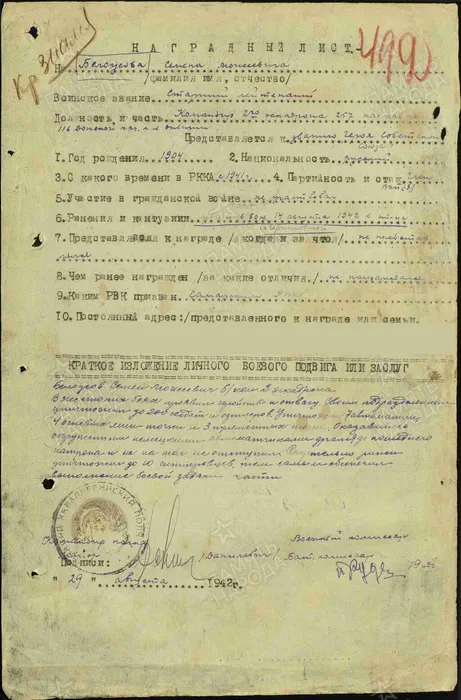 Кр Знамя
499
НАГРАДНЫЙ ЛИСТ.
На Белоусова Семена Моисеевича
/фамилия имя, отчество/
Воинское звание. Старший лейтенант
Должность и часть. Командир 2го эскадрона 257 кавполка
Представляется к званию Героя Советского
Союза
1. Год рождения. 1904 2. Национальность русский
3. С какого времени в РККА с 1941г 4. Партийность и стаж Член
5. Участие в гражданской войне. не участвовал
6. Ранения и контузии 14 августа 1942 г.
7. Представлялся к награде /когда и за что/ не представ
лялся
8. Чем ранее награжден /за какие отличия/ не награждался
9. Каким РВК призван. РВК
10. Постоянный адрес:/представленного к награде или семьи.
КРАТКОЕ ИЗЛОЖЕНИЕ ЛИЧНОГО БОЕВОГО ПОДВИГА ИЛИ ЗАСЛУГ
Белоусов Семен Моисеевич эскадрона
В жестоких боях проявил мужество и отвагу. Своим подразделением
уничтожено до 200 солдат и офицеров. Уничтожил 7 автомашин,
4 огневых точки и 3 точки. Оказавшись
окруженным немецкими автоматчиками дрался до последнего
патрона и не на шаг не отступил.
уничтожено до 10 гитлеровцев, тем самым обеспечил
выполнение боевой задачи части
Командир полка
майор /Данилевич/
Военный комиссар
Бат. комиссар
Подписи:
" 29 " августа 1942г.